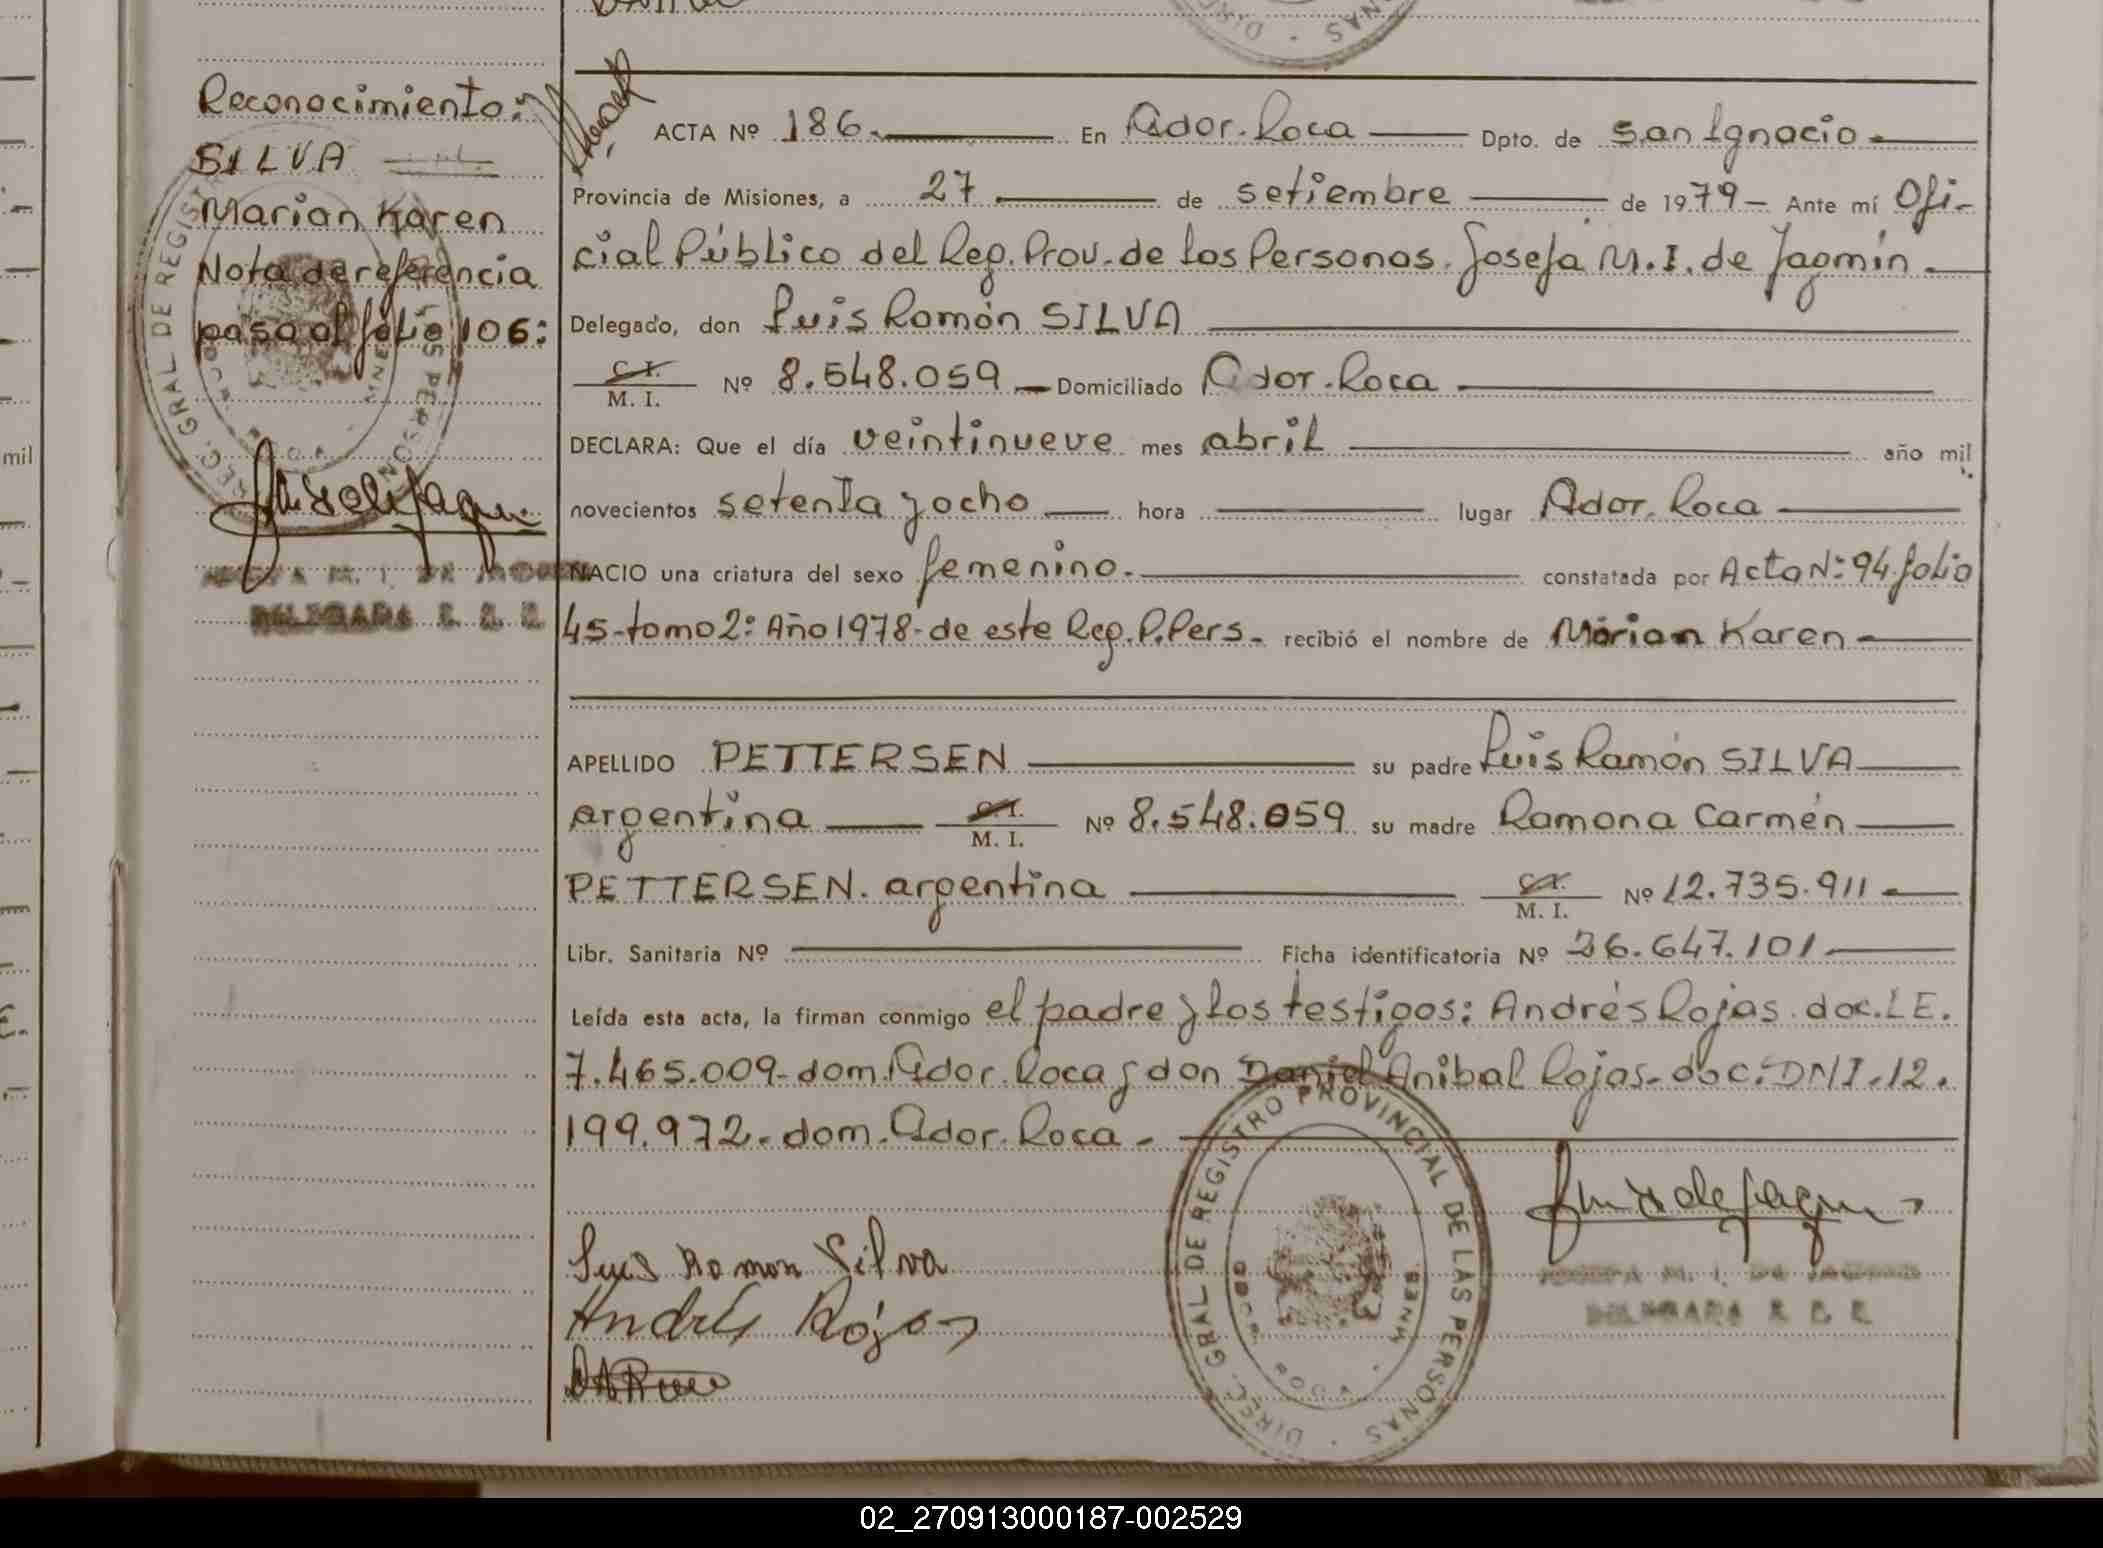 Reconocimiento:
SILVA
Marian Karen
Nota de referencia
pasa al folio 106:
ACTA Nº 186. En Gdor. Roca Dpto. de San Ignacio
Provincia de Misiones, a 27 de setiembre de 1979 Ante mí Ofi-
cial Público del Reg. Prov. de las Personas. Josefa M. I. de Jagmin.
Delegado, don Luis Ramón SILVA
C. I.
M. I. Nº 8.548.059 Domiciliado Gdor. Roca
DECLARA: Que el día veintinueve mes abril año mil
novecientos setenta y ocho hora lugar Gdor. Roca
NACIO una criatura del sexo femenino. constatada por Acta Nº: 94 folio
45-tomo 2: Año 1978-de este Reg. P. Pers. recibió el nombre de Marian Karen
APELLIDO PETTERSEN su padre Luis Ramón SILVA
argentina C. I.
M. I. Nº 8.548.059 su madre Ramona Carmén
PETTERSEN. argentina C. I.
M. I. Nº 12.735.911
Libr. Sanitaria Nº Ficha identificatoria Nº 26.647.101
Leída esta acta, la firman conmigo el padre y los testigos: Andrés Rojas. doc. LE.
7.465.009-dom. Gdor. Roca y don Daniel Anibal Rojas-doc: DNI.12.
199.972-dom. Gdor. Roca-
Luis Ramon Silva
Andrés Rojas
DIREC. GRAL DE REGISTRO PROVINCIAL DE LAS PERSONAS
JOSEFA M. I. DE JAGMIN
DELEGADA R. P. P.
02_270913000187-002529